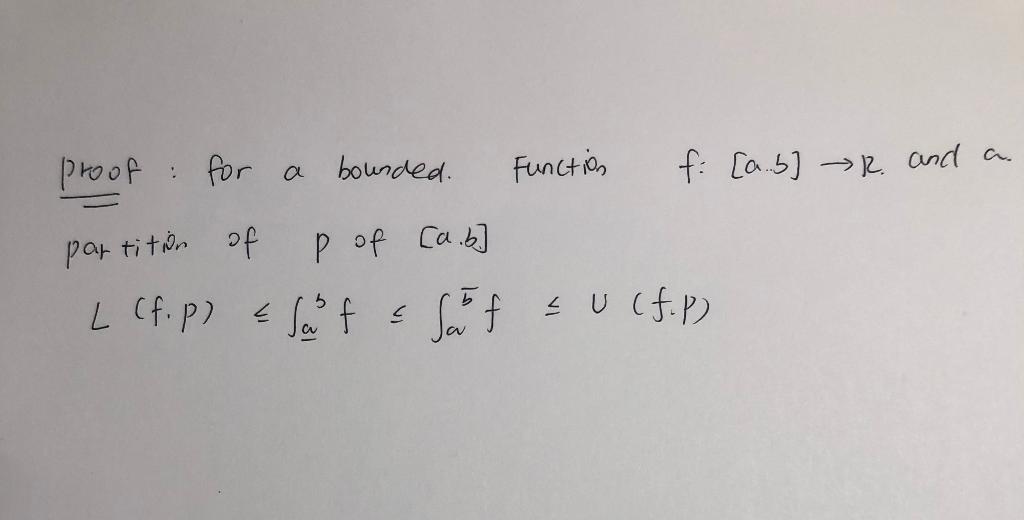 Proof : for a bounded. Function f: [a.b] → R. and a
partition of p of [a.b]
L (f.p) ≤ ∫_a̲^b f ≤ ∫_a^b̅ f ≤ U (f.p)